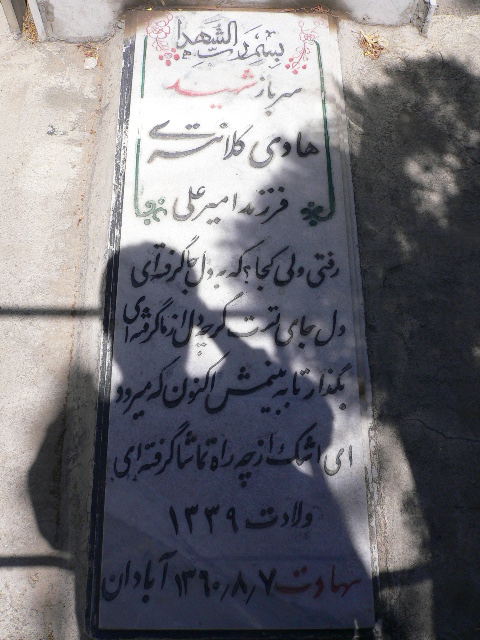 بسم رب الشهدا
سرباز شهید
هادی کلانتری
فرزند امیرعلی
رفتی ولی کجا؟ که به دل جا گرفته‌ای
دل جای تست گرچه دل از ما گرفته‌ای
بگذار تا به بینمش اکنون که میرود
ای اشک از چه راه تماشا گرفته‌ای
ولادت ۱۳۳۹
شهادت ۱۳۶۰٫۸٫۷ آبادان